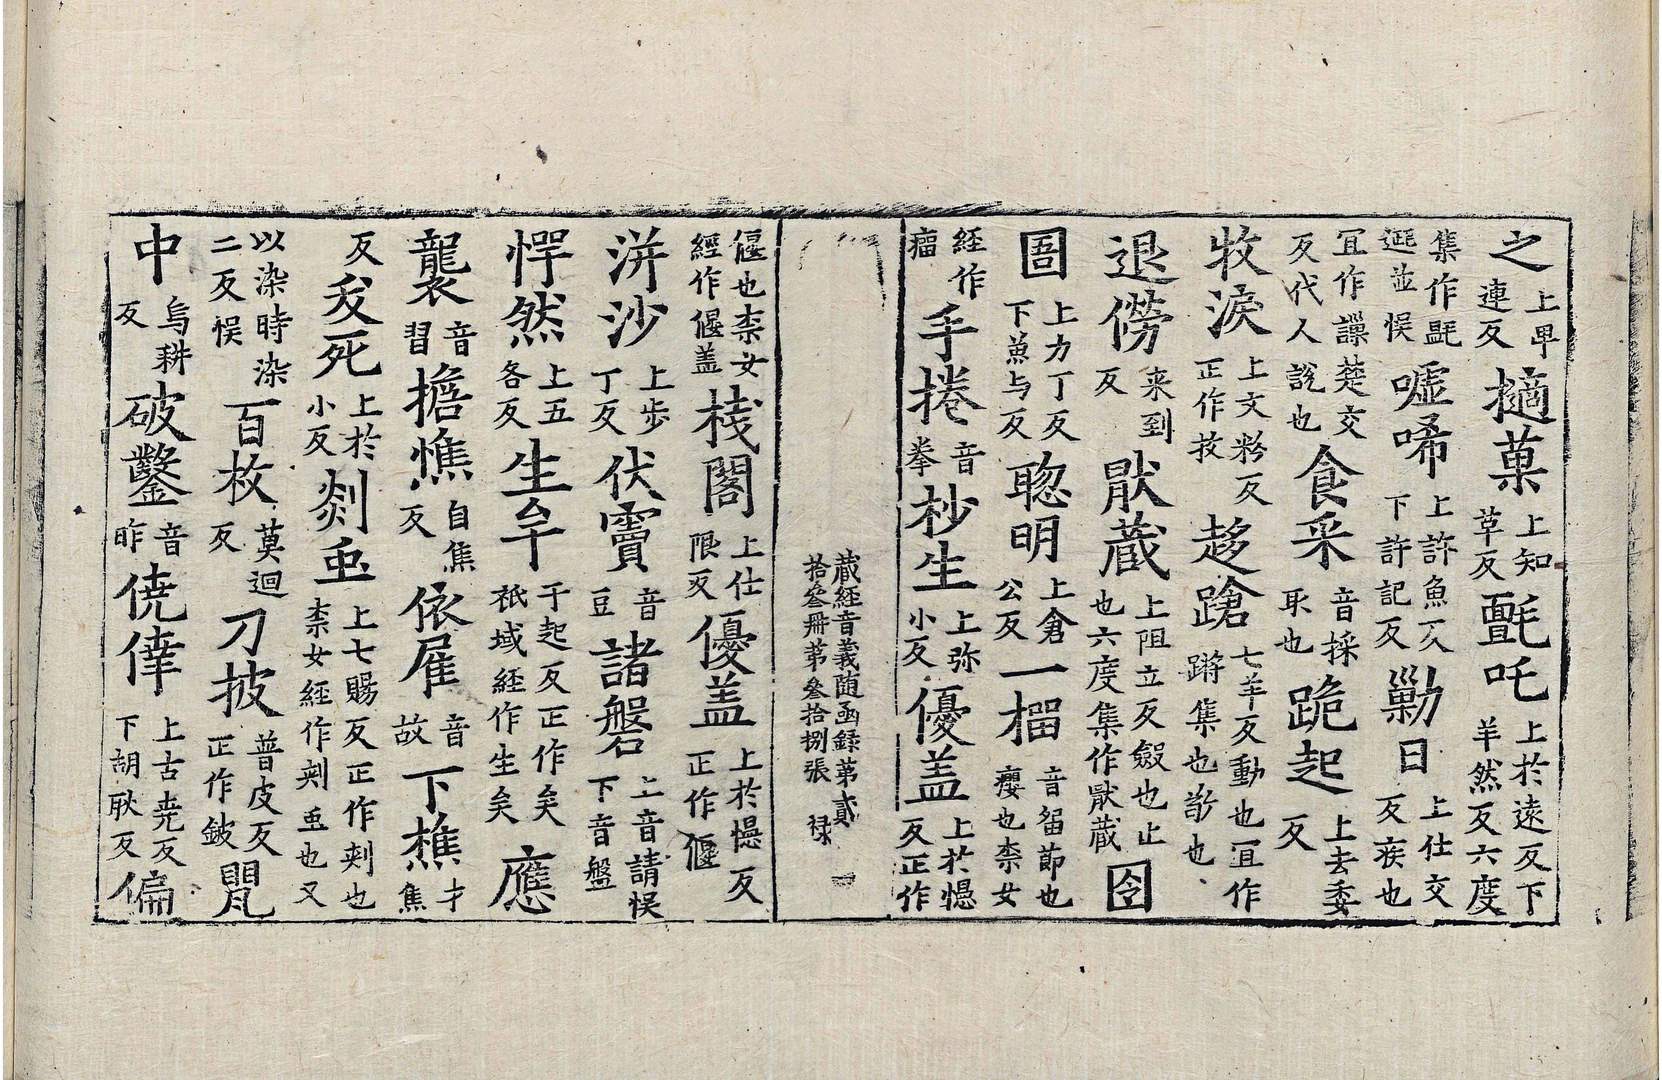 之上卑連反擿菓上知革反㲲吒上於遠反下羊然反六度
集作㲲𨓏並悮噓唏上許魚反下許記反勦日上仕交反疾也
冝作譟楚交反代人說也食采音採取也跪起上去委反
牧淚上文粉反正作抆趍蹌七羊反動也冝作蹡集也㪣也
退僗来到反猒蔵上阻立反斂也止也六度集作猒蔵囹
圄上力丁反下魚与反聦明上倉公反一榴音留節也癭也柰女
経作瘤手捲音拳杪生上弥小反優盖上於憶反正作
蔵經音義随函錄苐貳拾叄冊苐叄拾捌張 禄
偃也柰女經作偃盖棧閣上仕限反優盖上於憶反正作偃
洴沙上步丁反伏竇音豆諸磐上音請悮下音盤
愕然上五各反生𦍒于起反正作矣祇域経作生矣應
襲音習擔憔自焦反依雇音故下樵才焦
反𡗜死上於小反剡䖝上七賜反正作刾也柰女經作刾䖝也又
以染時染二反悮百枚莫迴反刀披普皮反正作鈹甖
中烏耕反破鑿音昨僥倖上古尭反下胡耿反偏